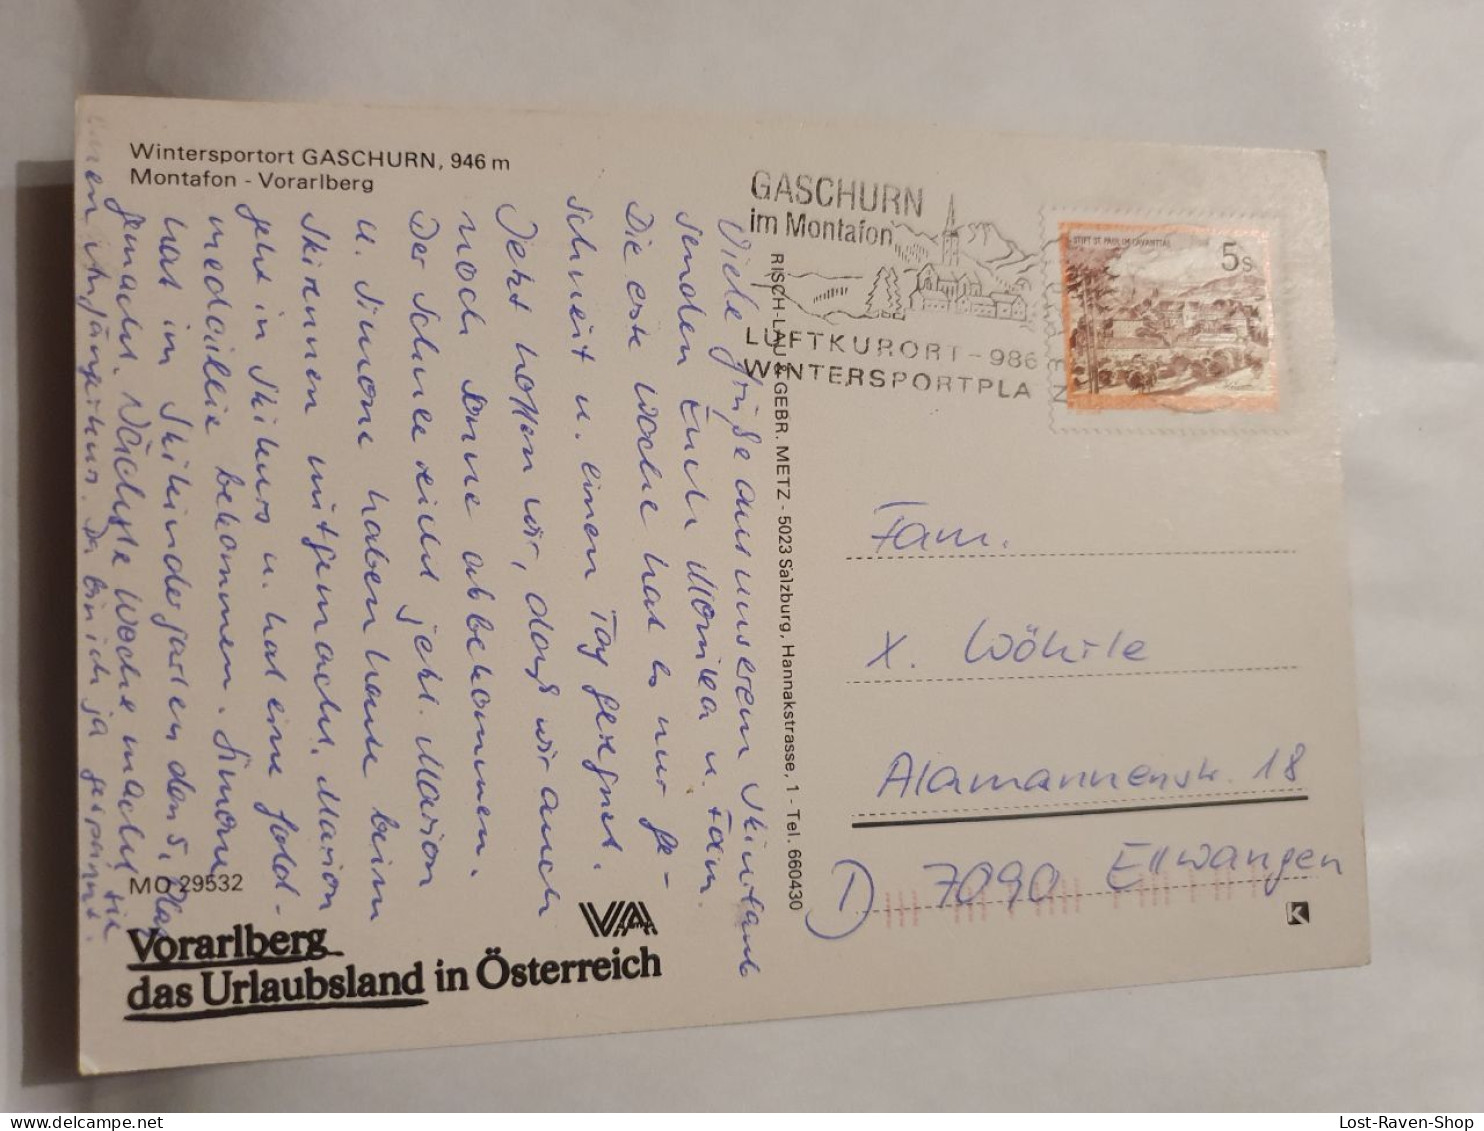 Wintersportort GASCHURN, 946 m
Montafon - Vorarlberg
GASCHURN
im Montafon
LUFTKURORT - 986
WINTERSPORTPLA Z
STIFT ST. PAUL IM LAVANTTAL
5 S
RISCH-LAU & GEBR. METZ - 5023 Salzburg, Hannakstrasse, 1 - Tel. 660430
Viele Grüße aus unserem Skiurlaub
senden Euch Monika u. Fam.
Die erste Woche hat es nur ge-
schneit u. einen Tag geregnet.
Jetzt hoffen wir, daß wir auch
noch Sonne abbekommen.
Der Schnee reicht jetzt. Marion
u. Simone haben heute beim
Skirennen mitgemacht. Marion
geht in Skikurs u. hat eine Gold-
medaillie bekommen. Simone
hat im Skikindergarten den 5. Platz
gemacht. Nächste Woche macht sie
einen Anfängerkurs. Da bin ich ja gespannt.
Fam.
X. Wöhrle
Alamannenstr. 18
D 7090 Ellwangen
MO 29532
VA
Vorarlberg
das Urlaubsland in Österreich
K
Lost-Raven-Shop